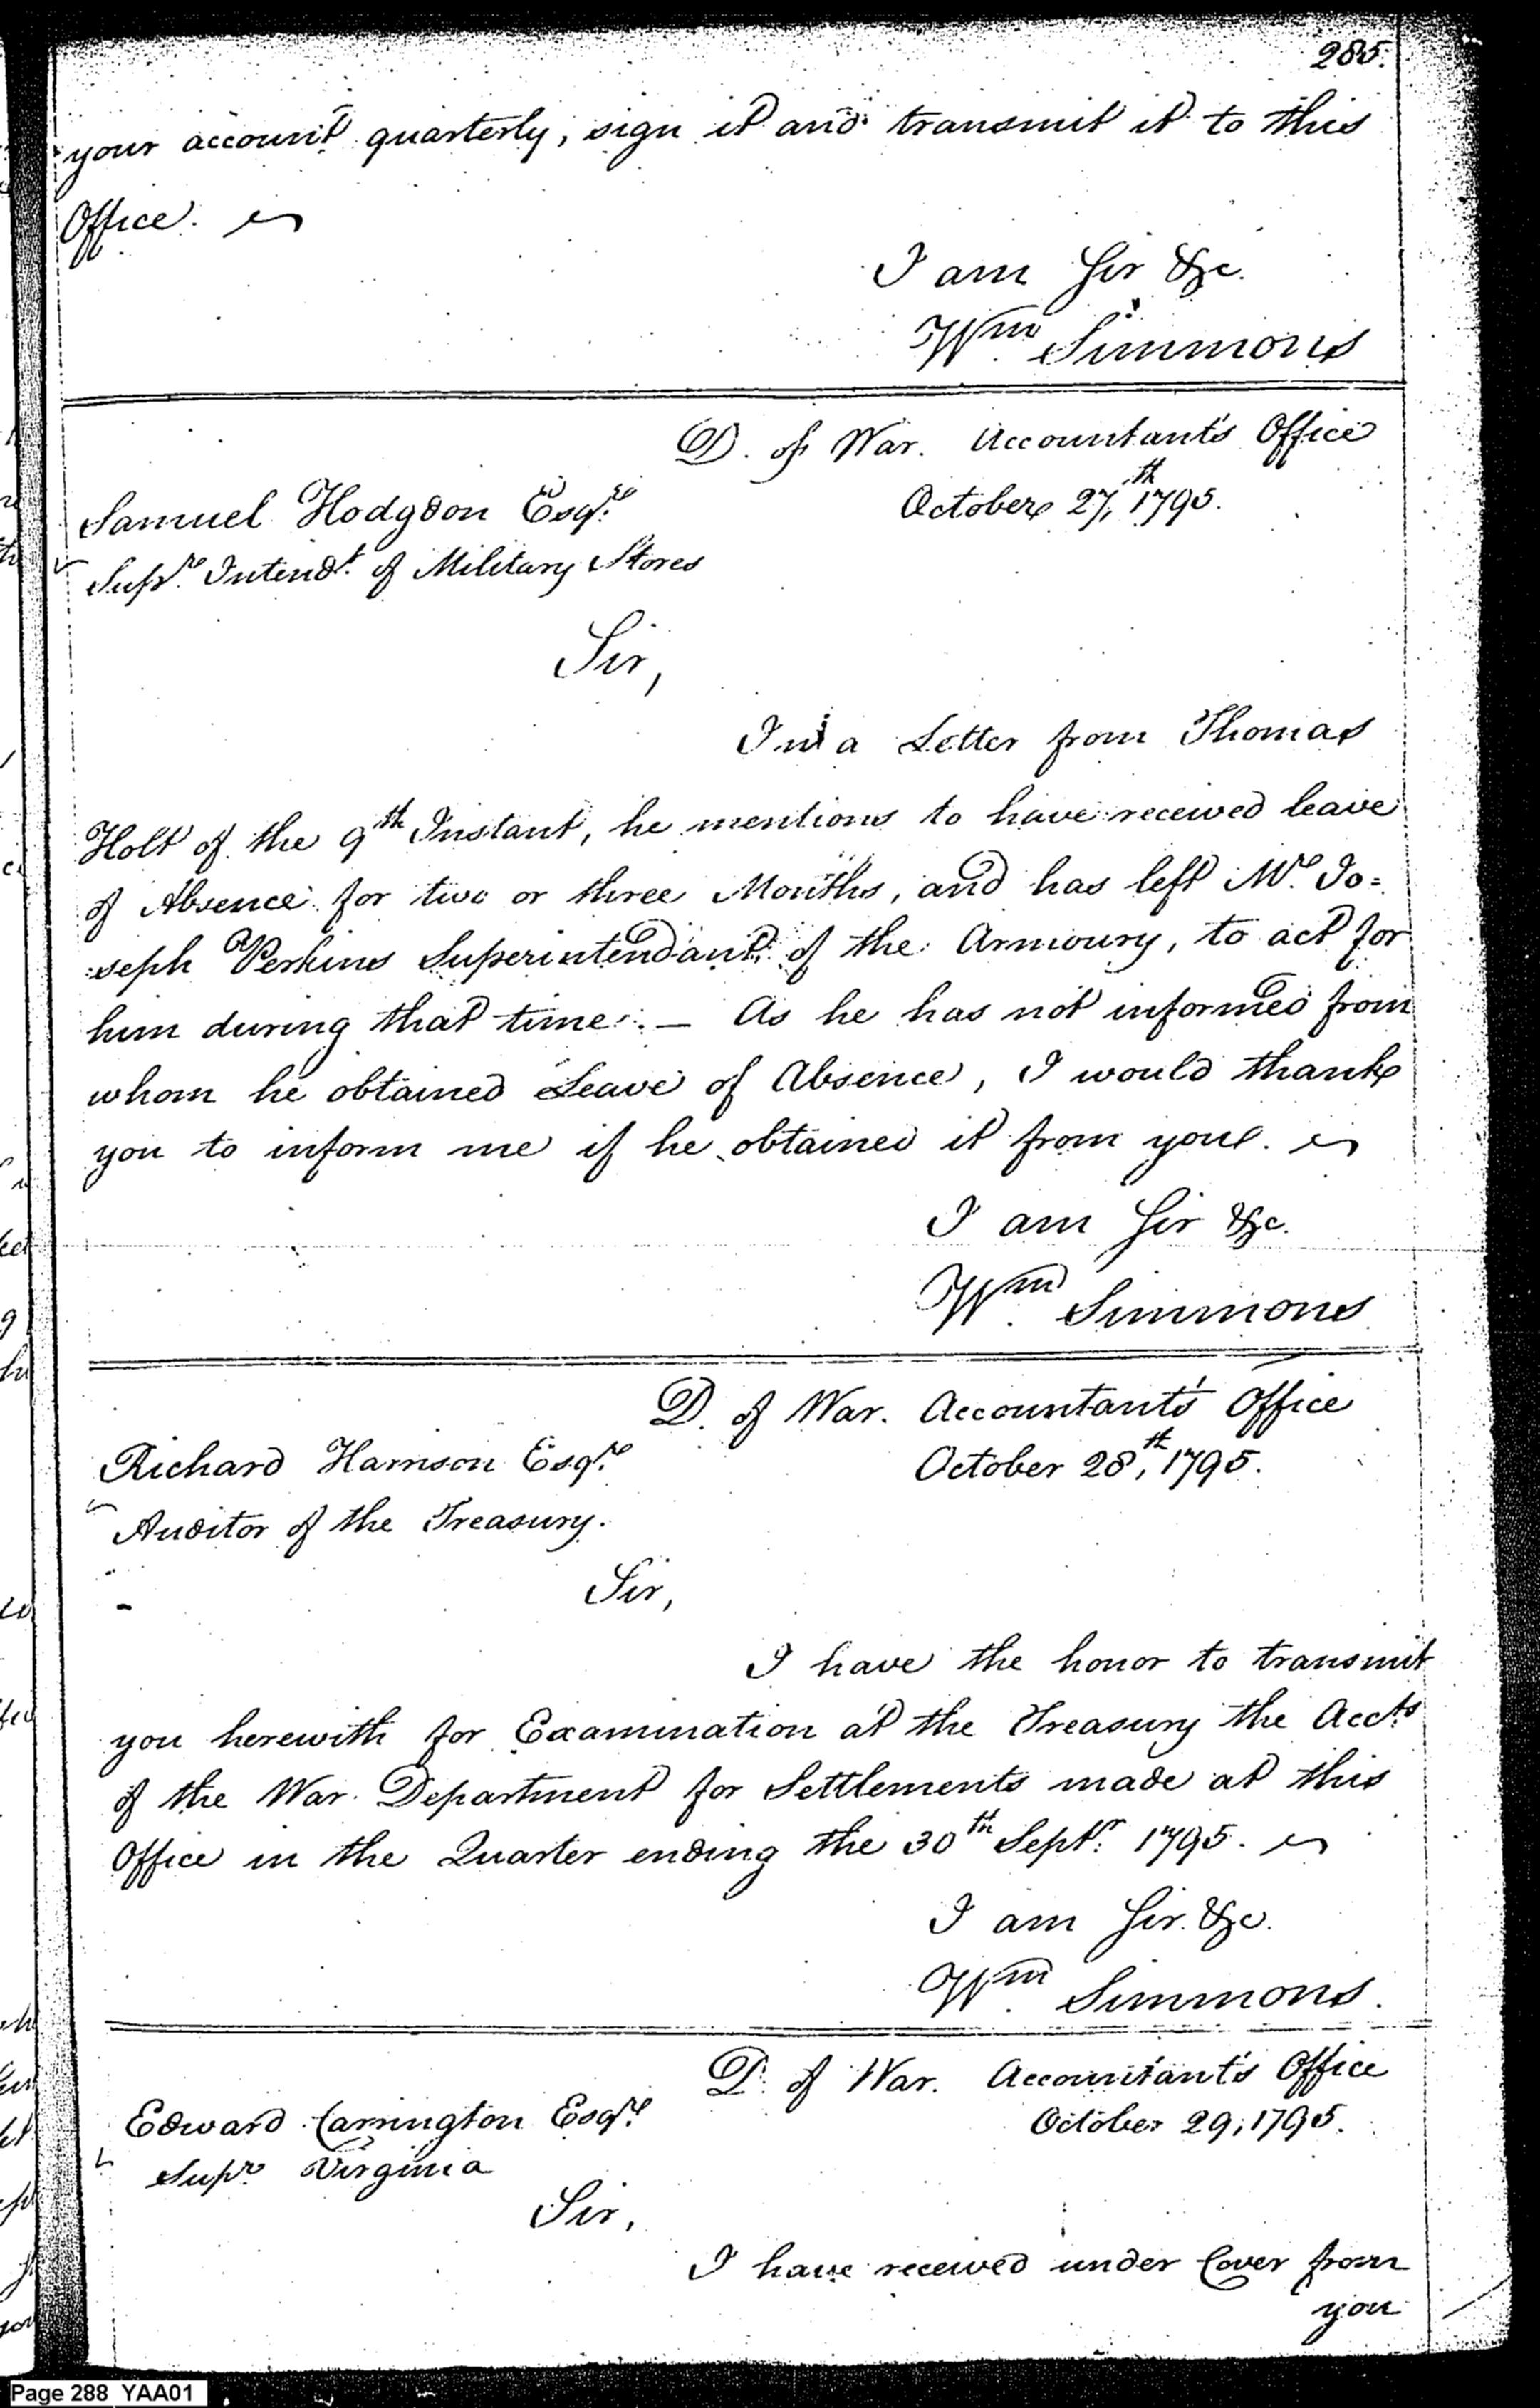 285.
your account quarterly, sign it and transmit it to this
Office.
I am Sir &c.
Wm. Simmons
D. of War. Accountant's Office
October 27th, 1795.
Samuel Hodgdon Esqre.
Supr. Intendt. of Military Stores
Sir,
In a Letter from Thomas
Holt of the 9th Instant, he mentions to have received leave
of Absence for two or three Months, and has left Mr. Jo=
seph Perkins Superintendant of the Armoury, to act for
him during that time. — As he has not informed from
whom he obtained Leave of Absence, I would thank
you to inform me if he obtained it from you.
I am Sir &c.
Wm. Simmons
D. of War. Accountant's Office
October 28th, 1795.
Richard Harrison Esqre.
Auditor of the Treasury.
Sir,
I have the honor to transmit
you herewith for Examination at the Treasury the Accts.
of the War Department for Settlements made at this
Office in the Quarter ending the 30th Septr. 1795.
I am Sir. &c.
Wm. Simmons.
D. of War. Accountant's Office
October 29, 1795.
Edward Carrington Esqre.
Supr. Virginia
Sir,
I have received under Cover from
you
Page 288 YAA01